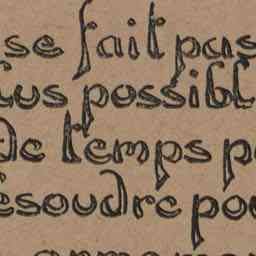 se fait pas
lus possibl
De temps p
ésoudre pou